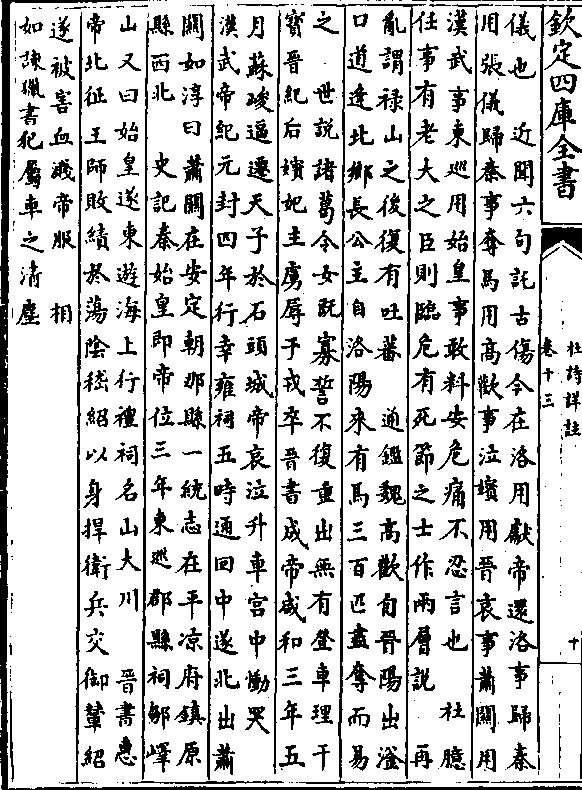 欽定四庫全書
杜詩詳註
卷十三
十
儀也　近聞六句託古傷今在洛用獻帝還洛事歸秦
用張儀歸秦事奪馬用高歡事泣嬪用晉哀事蕭關用
漢武事東巡用始皇事敢料安危痛不忍言也　杜臆
任事有老大之臣則臨危有死節之士作兩層說　再
亂謂禄山之後復有吐蕃　通鑑魏高歡自晉陽出滏
口道逢北鄉長公主自洛陽來有馬三百匹盡奪而易
之　世説諸葛令女既寡誓不復重出無有登車理　干
寳晉紀后嬪妃主虜辱于戎卒晉書成帝咸和三年五
月蘇峻逼遷天子於石頭城帝哀泣升車宫中慟哭
漢武帝紀元封四年行幸雍祠五時通回中遂北出蕭
關如淳曰蕭關在安定朝那縣一統志在平凉府鎮原
縣西北　史記秦始皇即帝位三年東巡郡縣祠鄒嶧
山又曰始皇遂東遊海上行禮祠名山大川　晉書惠
帝北征王師敗績於蕩陰嵇紹以身捍衛兵交御輦紹
遂被害血濺帝服　相
如諫獵書犯屬車之清塵